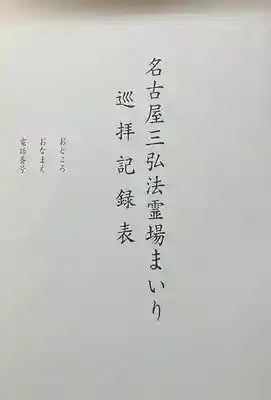 名古屋三弘法霊場まいり
巡拝記録表
おところ
おなまえ
電話番号